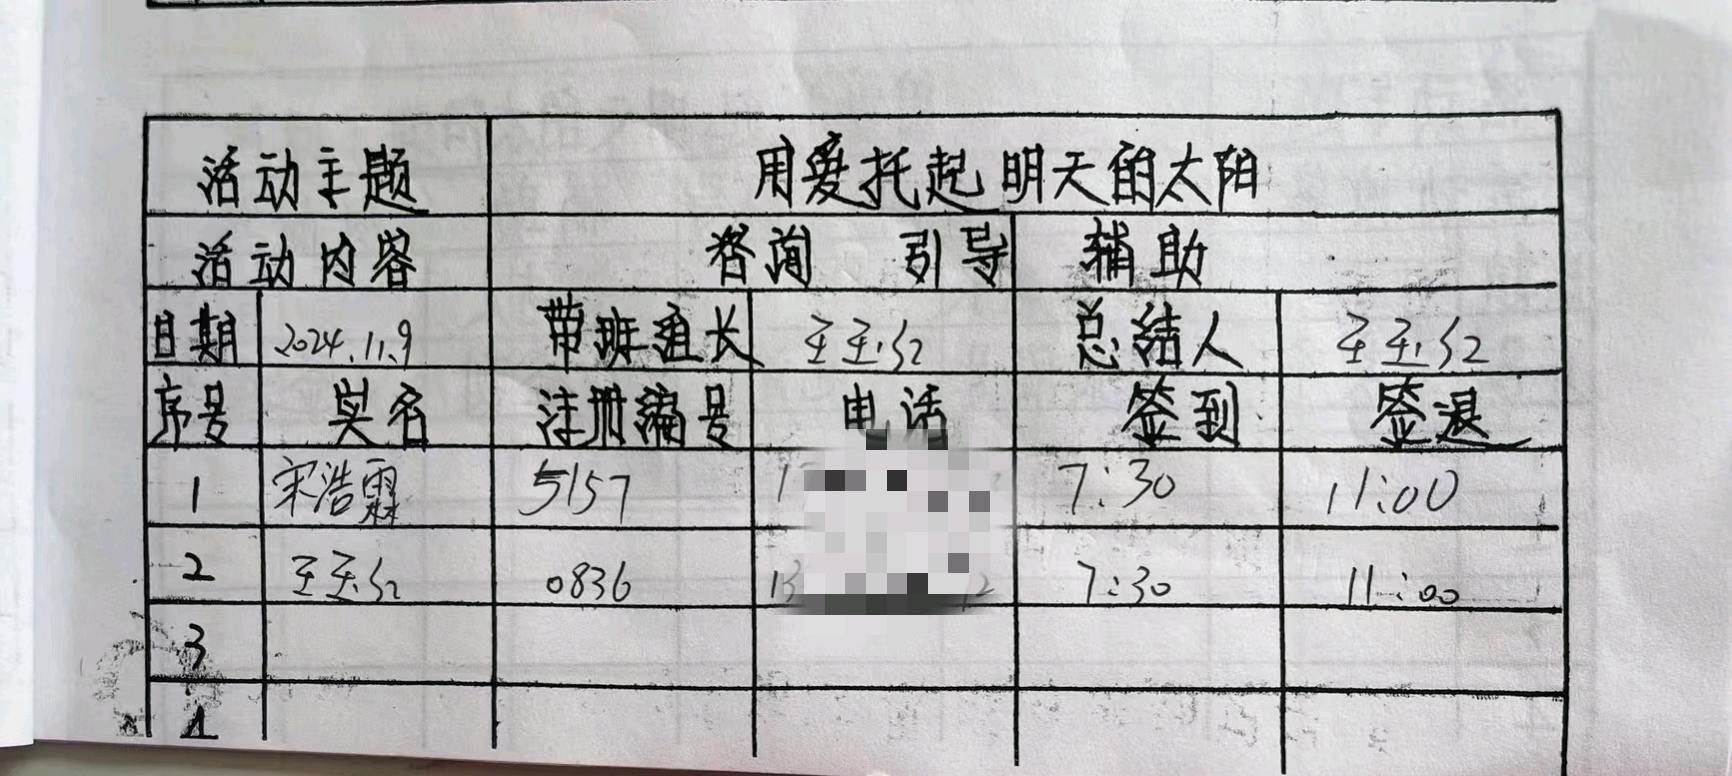 活动主题 用爱托起明天的太阳
活动内容 咨询 引导 辅助
日期 2024.11.9 带班组长 王玉红 总结人 王玉红
序号 姓名 注册编号 电话 签到 签退
1 宋浩霖 5157 7:30 11:00
2 王玉红 0836 13 2 7:30 11:00
3
4